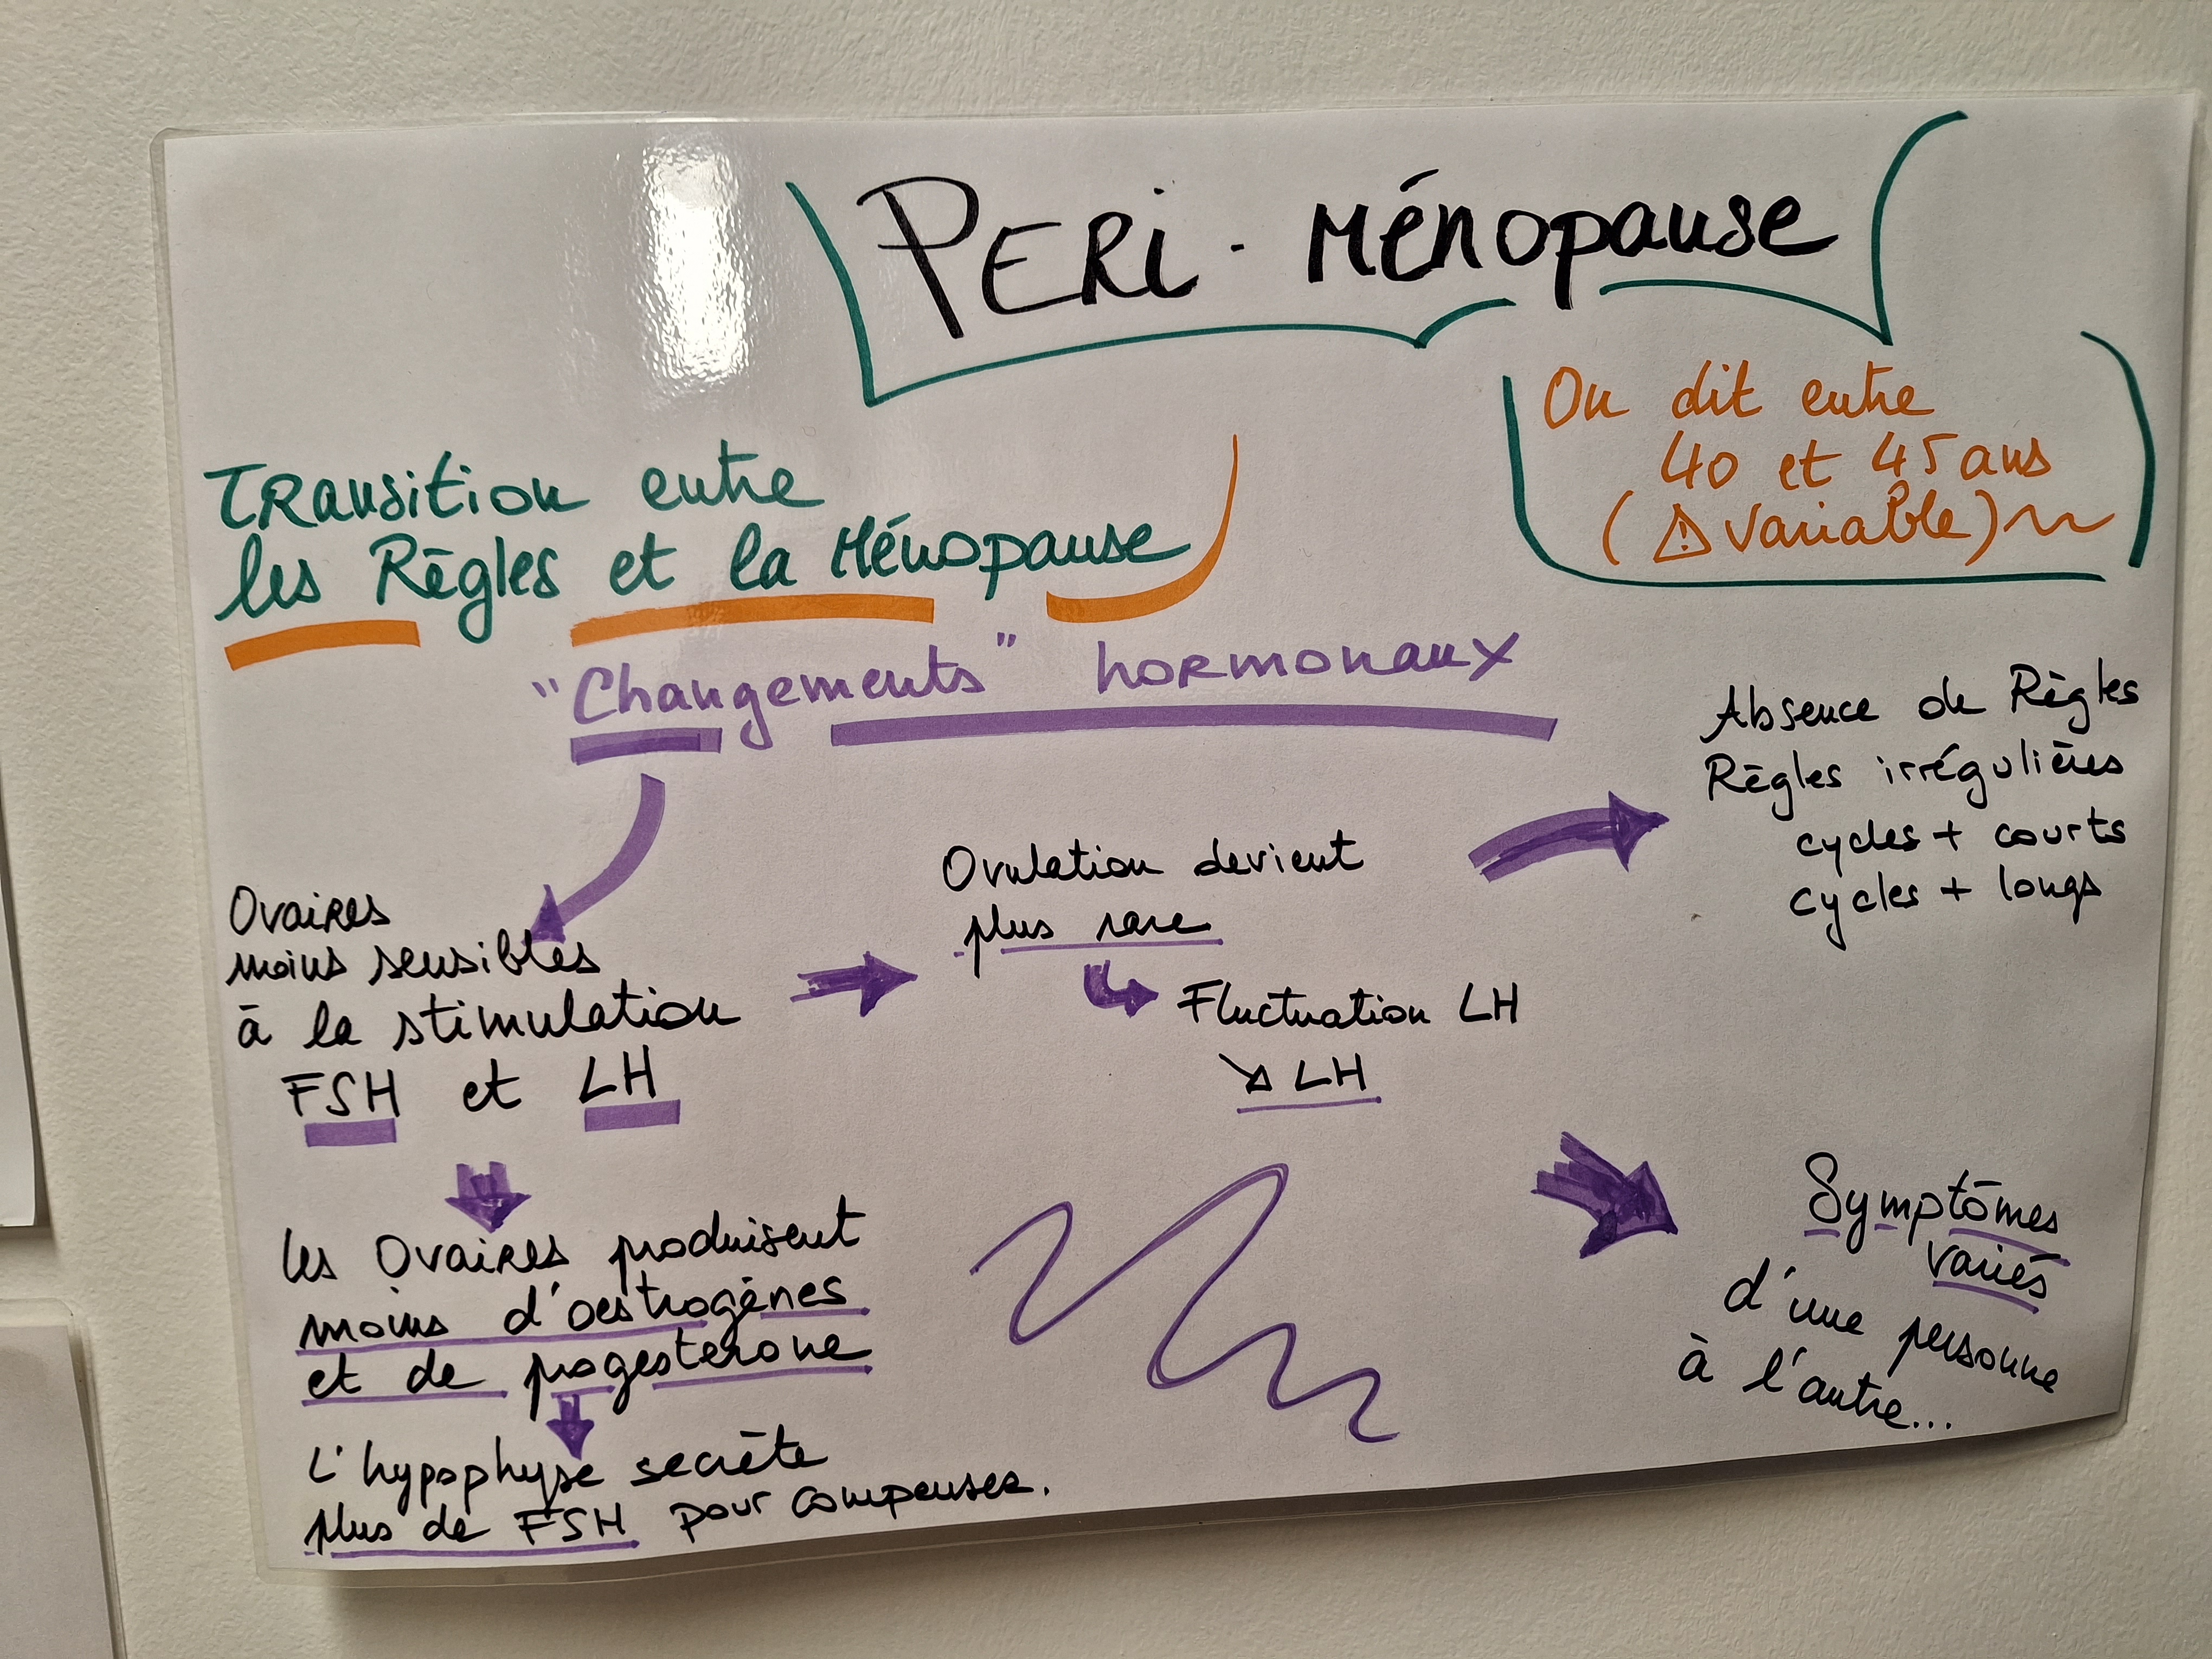 PERI - Ménopause
On dit entre
40 et 45 ans
(⚠ variable)
Transition entre
les Règles et la Ménopause
"Changements" hormonaux
Ovaires
moins sensibles
à la stimulation
FSH et LH
les Ovaires produisent
moins d'oestrogènes
et de progesterone
L'hypophyse secrète
plus de FSH pour compenser.
Ovulation devient
plus rare
Fluctuation LH
↘ LH
Absence de Règles
Règles irrégulières
cycles + courts
cycles + longs
Symptômes
variés
d'une personne
à l'autre...